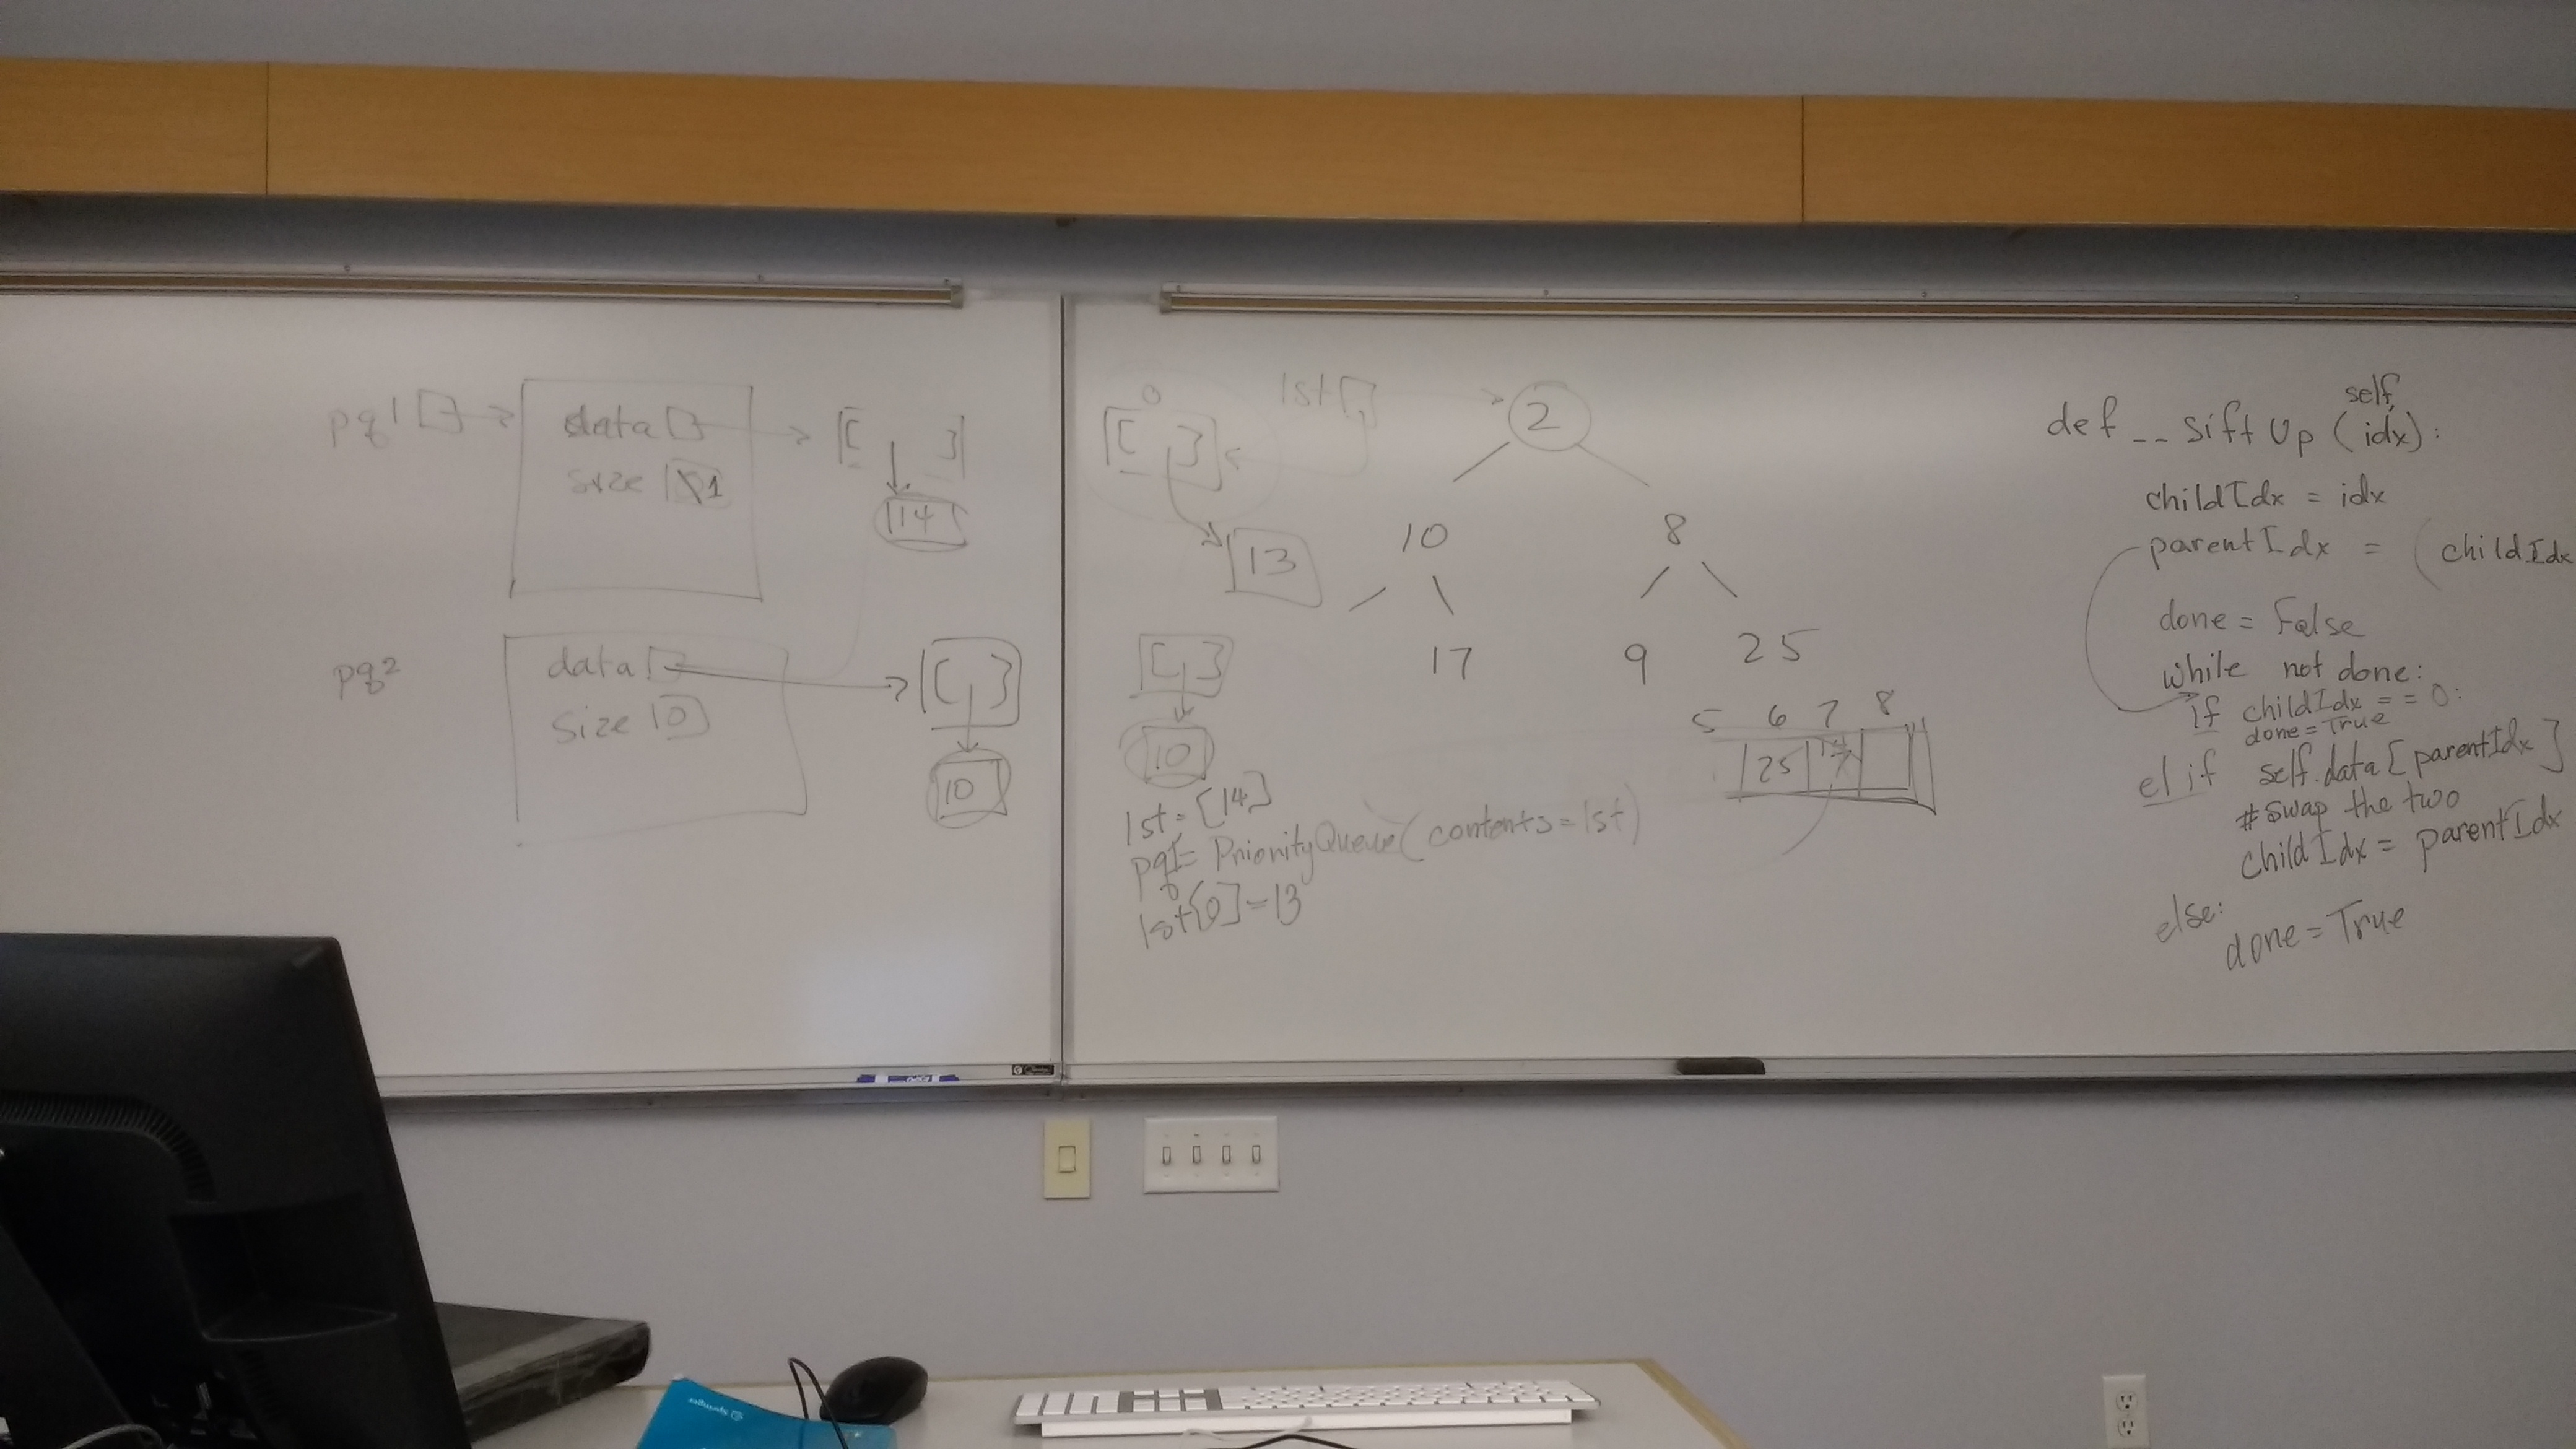 pq1
data
size 1
14
pq2
data
size 0
10
0
lst
13
10
lst = [14]
pq1 = PriorityQueue(contents=lst)
lst[0] = 13
2
10 8
17 9 25
5 6 7 8
25
self,
def __siftUp(idx):
childIdx = idx
parentIdx = (childIdx
done = False
while not done:
if childIdx == 0:
done = True
elif self.data[parentIdx]
# swap the two
childIdx = parentIdx
else:
done = True
Springer